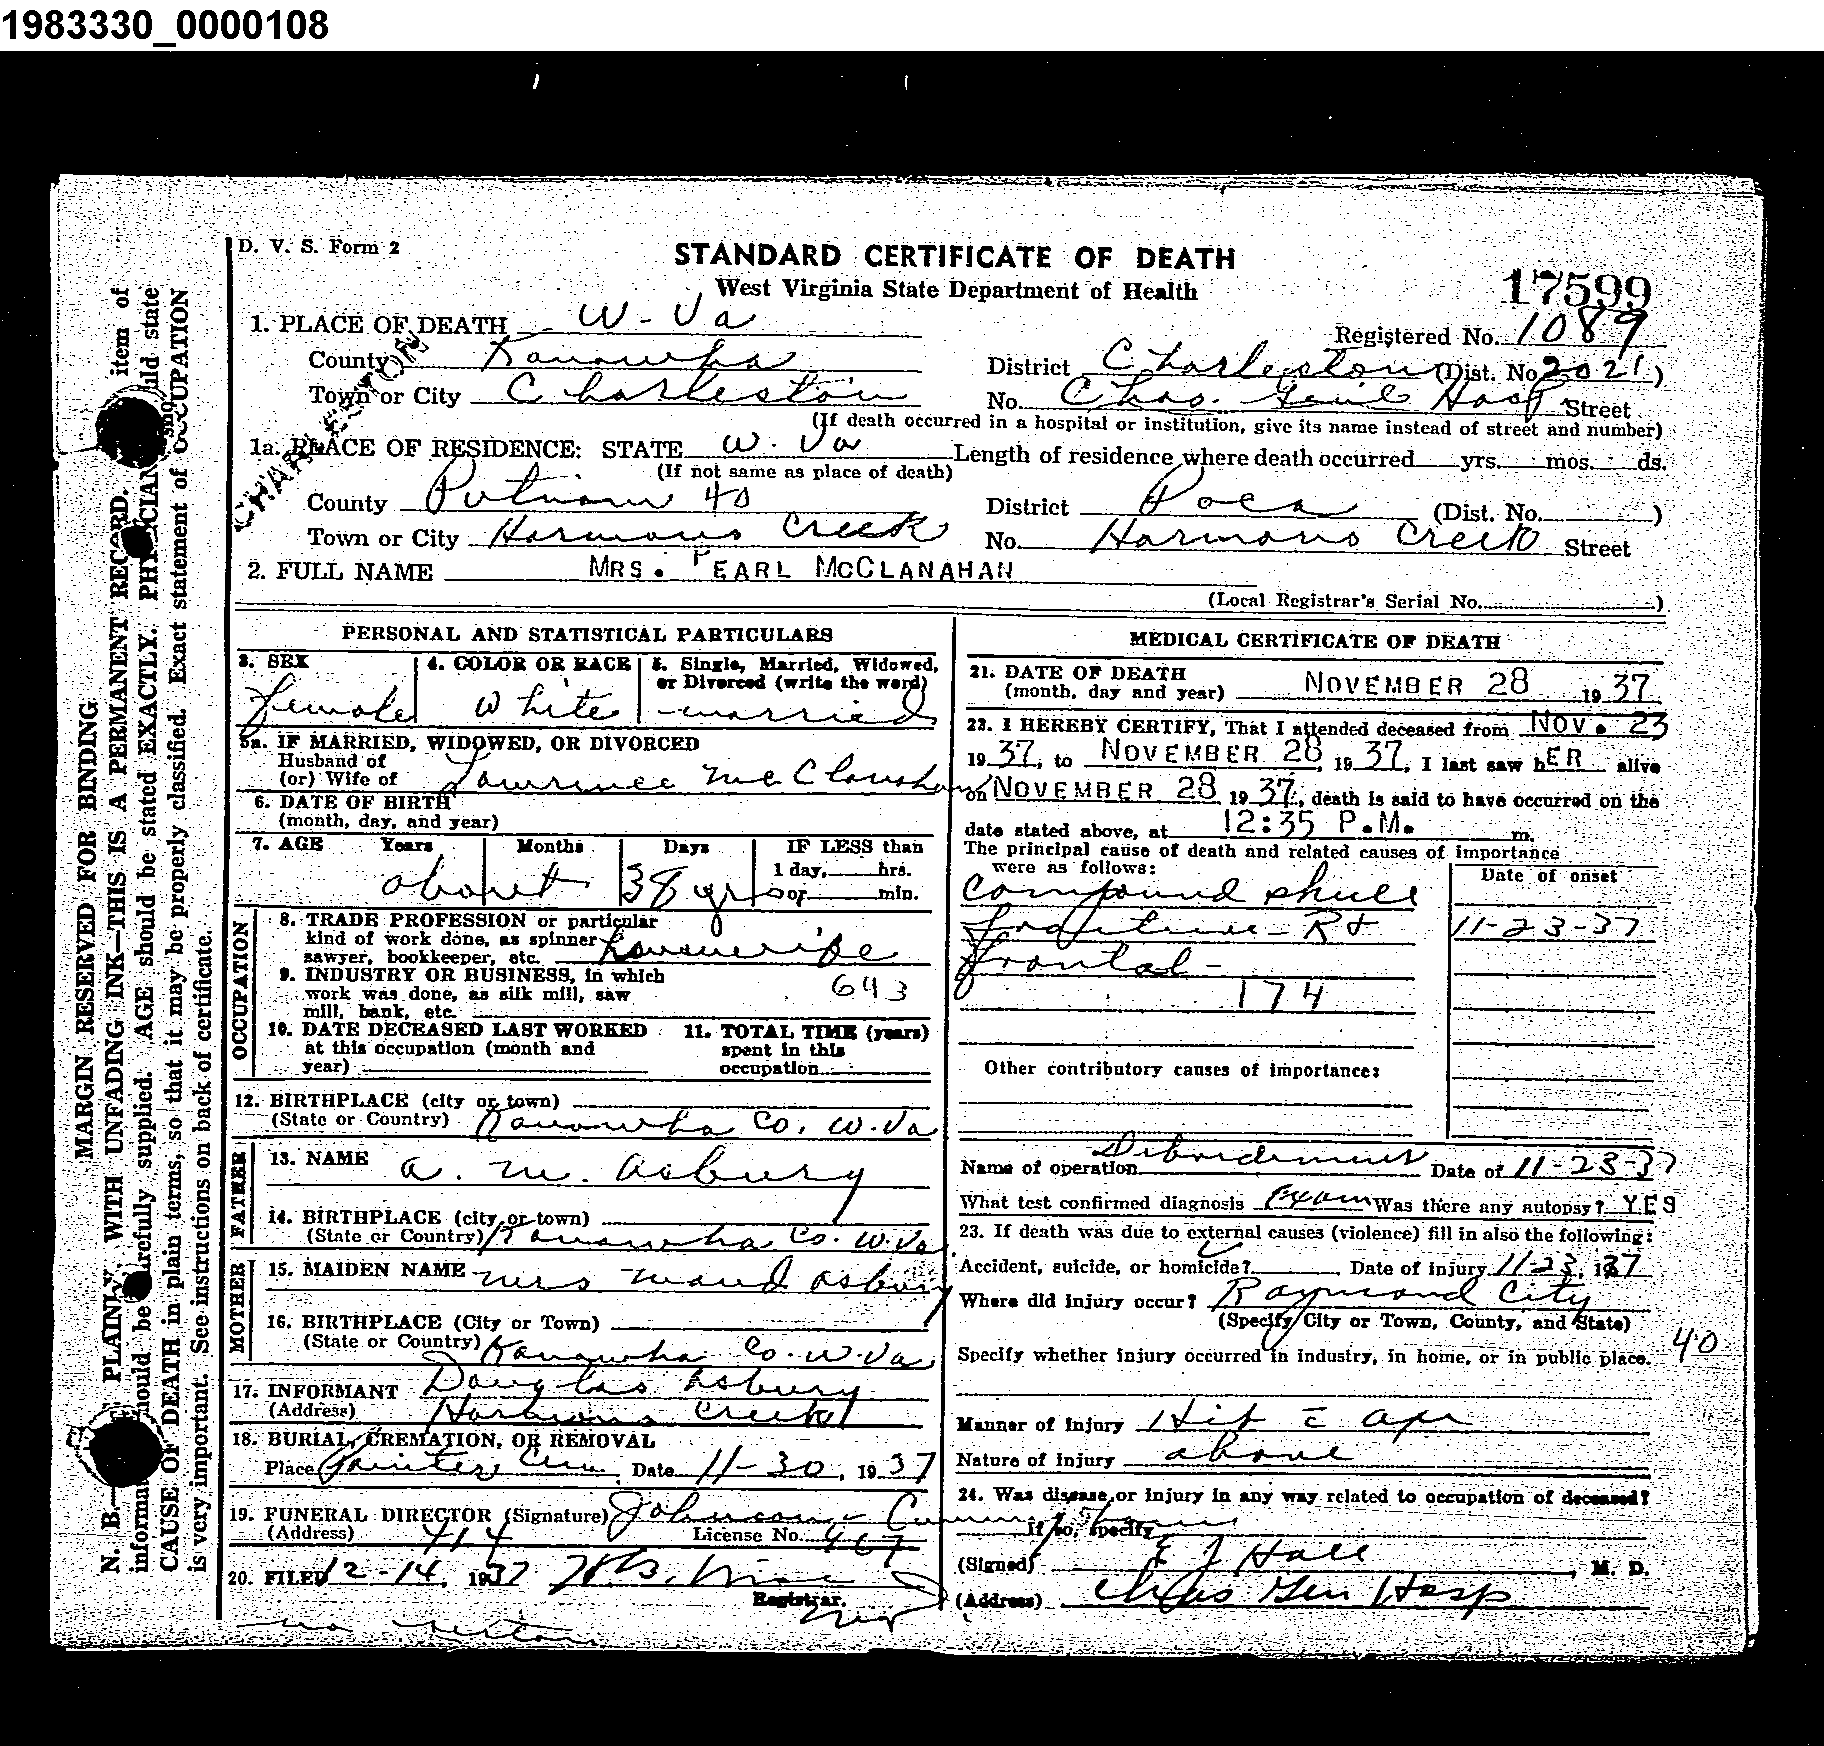 1983330_0000108
D. V. S. Form 2
STANDARD CERTIFICATE OF DEATH
West Virginia State Department of Health
17599
1. PLACE OF DEATH W-Va
Registered No. 1089
County Kanawha
District Charleston (Dist. No. 2021)
Town or City Charleston
No. Chas. Genl Hosp Street
(If death occurred in a hospital or institution, give its name instead of street and number)
CHARLESTON
1a. PLACE OF RESIDENCE: STATE W. Va
(If not same as place of death)
Length of residence where death occurred yrs. mos. ds.
County Putnam 40
District Poca (Dist. No. )
Town or City Harmons Creek
No. Harmons Creek Street
2. FULL NAME MRS. PEARL MCCLANAHAN
(Local Registrar's Serial No. )
PERSONAL AND STATISTICAL PARTICULARS
3. SEX
female
4. COLOR OR RACE
White
5. Single, Married, Widowed,
or Divorced (write the word)
married
5a. IF MARRIED, WIDOWED, OR DIVORCED
Husband of
(or) Wife of Lawrence McClanahan
6. DATE OF BIRTH
(month, day, and year)
7. AGE Years Months Days IF LESS than
1 day, hrs.
or min.
about 38 yrs
OCCUPATION
8. TRADE PROFESSION or particular
kind of work done, as spinner
sawyer, bookkeeper, etc. housewife
9. INDUSTRY OR BUSINESS, in which
work was done, as silk mill, saw
mill, bank, etc.
643
10. DATE DECEASED LAST WORKED
at this occupation (month and
year)
11. TOTAL TIME (years)
spent in this
occupation
12. BIRTHPLACE (city or town)
(State or Country) Kanawha Co. W. Va
FATHER
13. NAME A. M. Asbury
14. BIRTHPLACE (city or town)
(State or Country) Kanawha Co. W. Va
MOTHER
15. MAIDEN NAME Mrs Maud Asbury
16. BIRTHPLACE (City or Town)
(State or Country) Kanawha Co. W. Va
17. INFORMANT Douglas Asbury
(Address) Harmons Creek
18. BURIAL, CREMATION, OR REMOVAL
Place Cem. Date 11-30, 1937
19. FUNERAL DIRECTOR (Signature) Johnson
(Address) 414 License No. 467
20. FILED 12-14, 1937
Registrar.
MEDICAL CERTIFICATE OF DEATH
21. DATE OF DEATH
(month, day and year) NOVEMBER 28 1937
22. I HEREBY CERTIFY, That I attended deceased from NOV. 23
1937, to NOVEMBER 28, 1937, I last saw hER alive
on NOVEMBER 28, 1937, death is said to have occurred on the
date stated above, at 12:35 P.M. m.
The principal cause of death and related causes of importance
were as follows:
Date of onset
compound skull
fracture - Rt 11-23-37
frontal -
174
Other contributory causes of importance:
Name of operation Debridement Date of 11-23-37
What test confirmed diagnosis Exam Was there any autopsy? YES
23. If death was due to external causes (violence) fill in also the following:
Accident, suicide, or homicide? Date of injury 11-23, 1937
Where did injury occur? Raymond City
(Specify City or Town, County, and State)
Specify whether injury occurred in industry, in home, or in public place. 40
Manner of Injury Hit c̄ ax
Nature of Injury above
24. Was disease or injury in any way related to occupation of deceased?
If so, specify
(Signed) E J Hall, M. D.
(Address) Chas Gen Hosp
MARGIN RESERVED FOR BINDING
N. B. PLAINLY, WITH UNFADING INK—THIS IS A PERMANENT RECORD. item of
should be carefully supplied. AGE should be stated EXACTLY. PHYSICIAN should state
CAUSE OF DEATH in plain terms, so that it may be properly classified. Exact statement of OCCUPATION
is very important. See instructions on back of certificate.